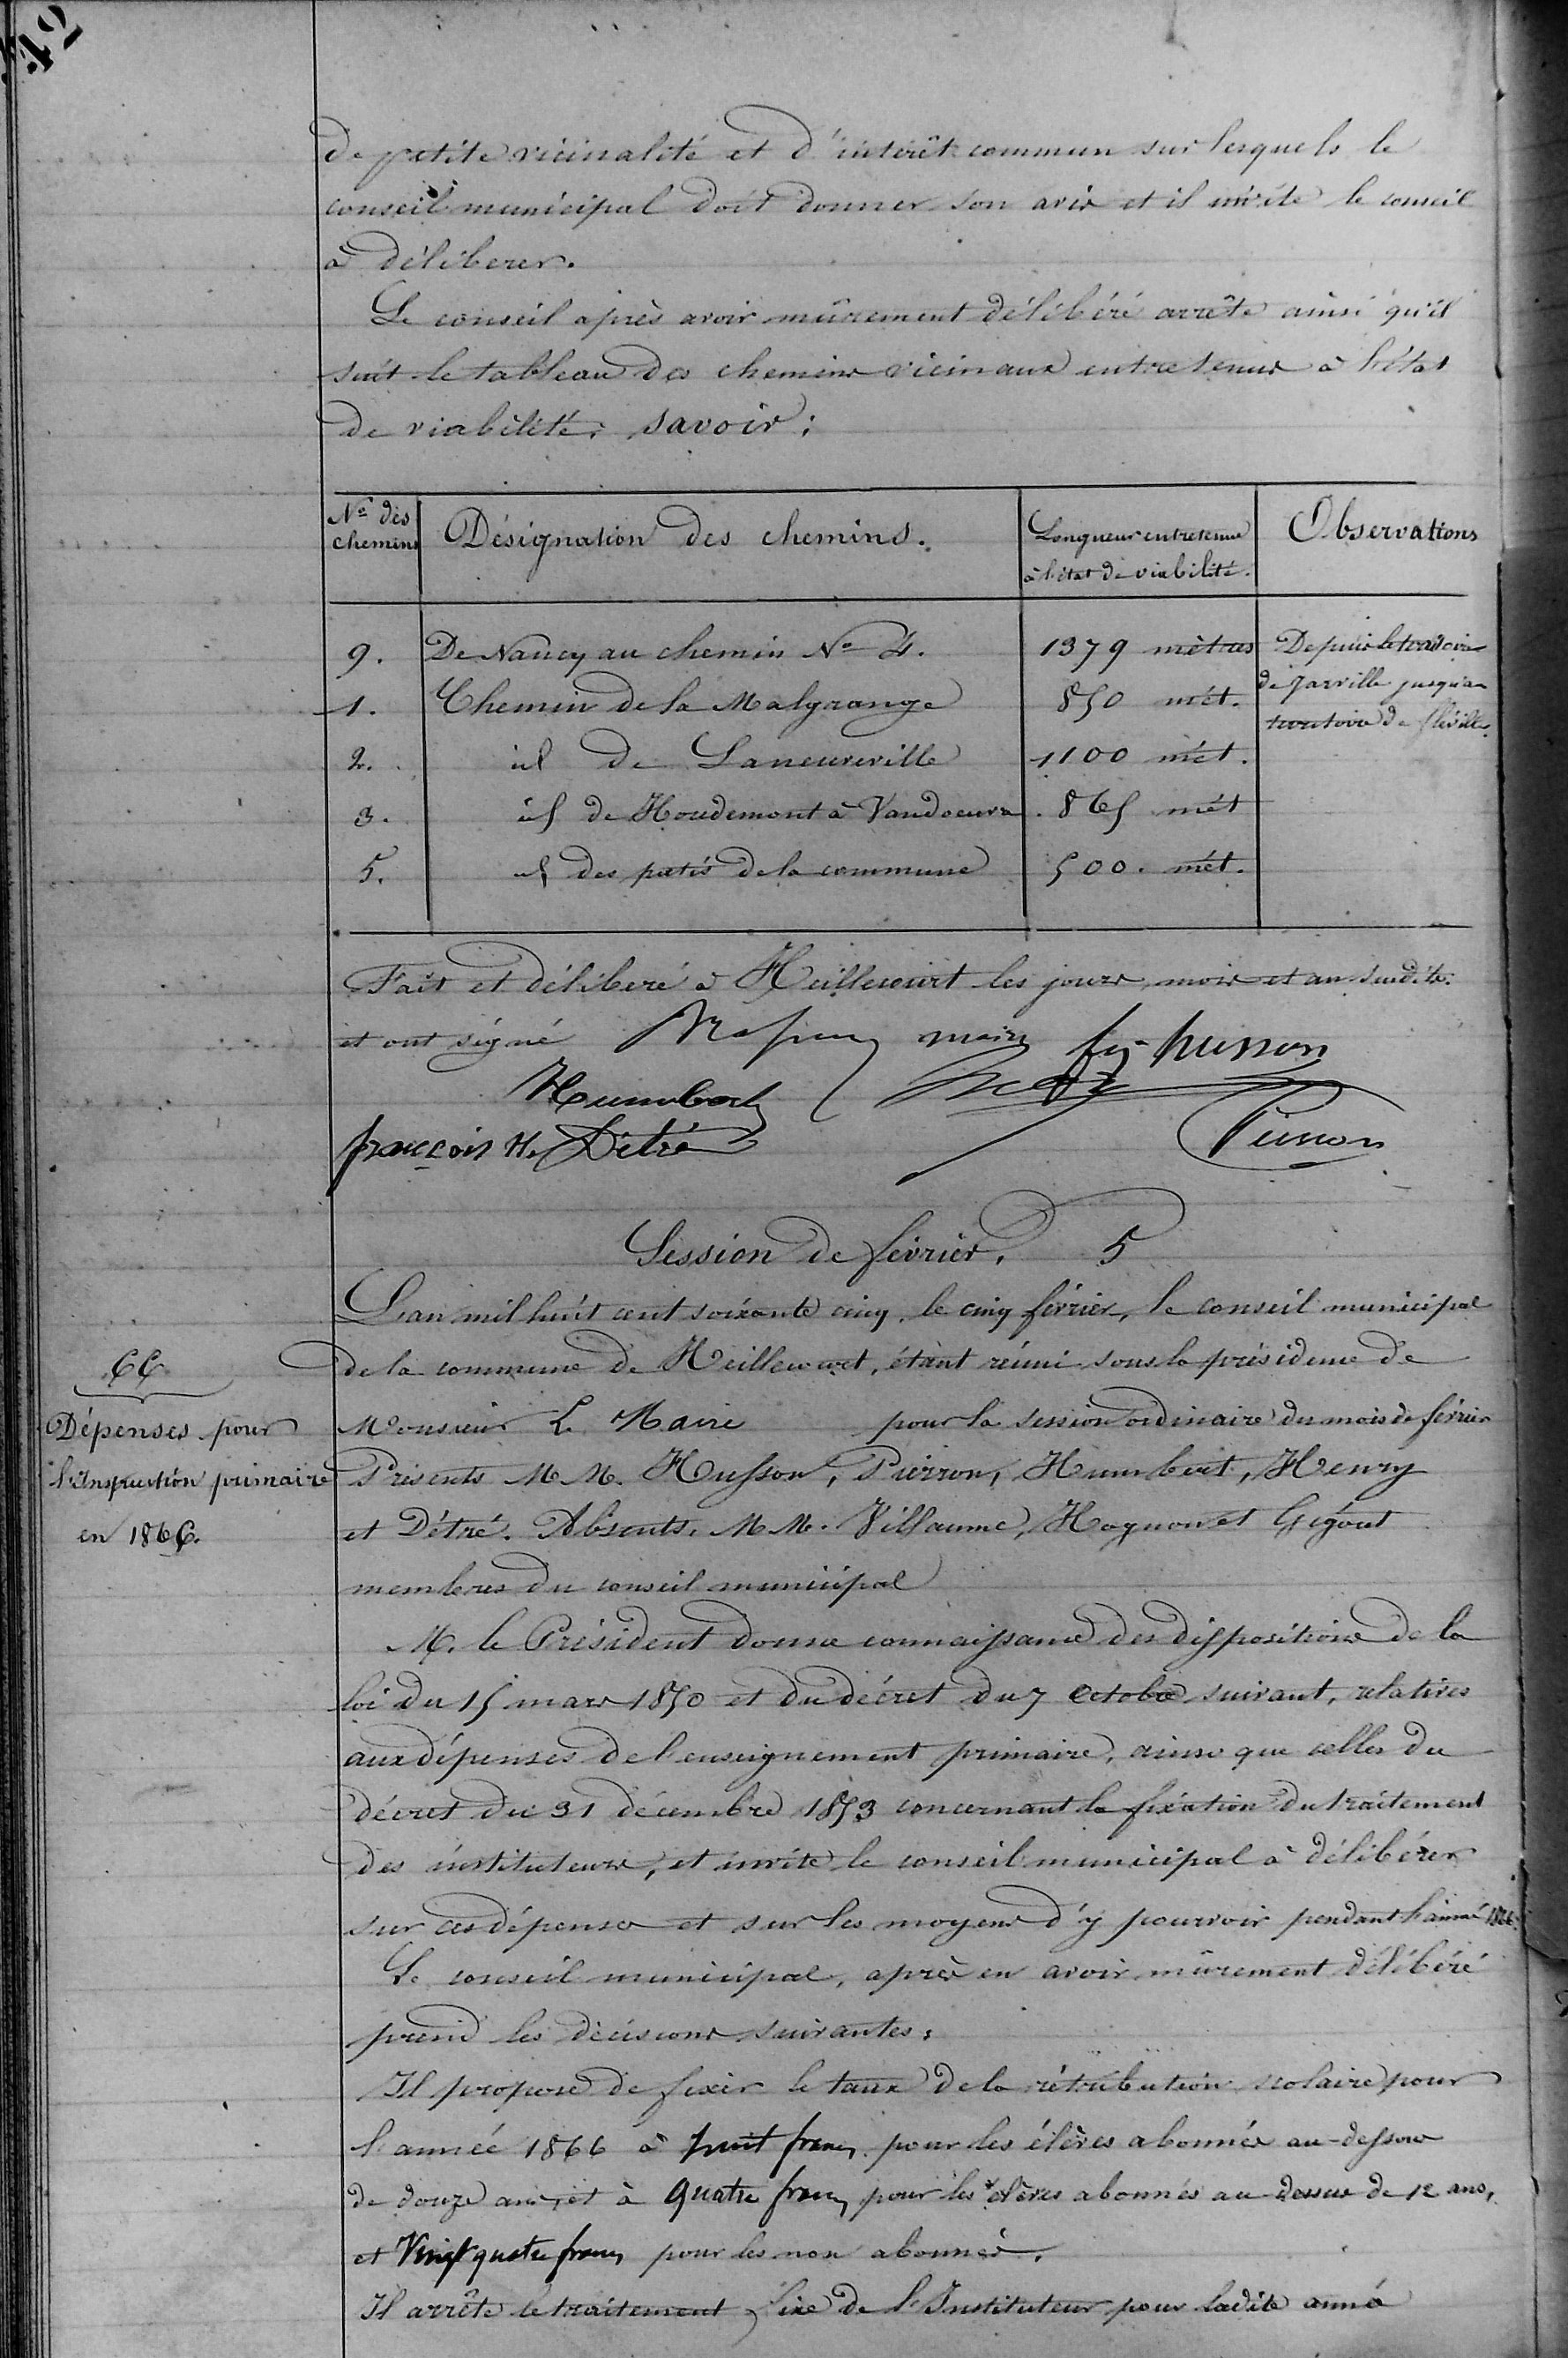 42
de petite vicinalité et d'intérêt commun sur lesquels le
conseil municipal doit donner son avis et il invite le conseil
à déliberer.
Le conseil après avoir mûrement délibéré arrête ainsi qu'il
suit le tableau des chemins vicinaux entretenus à l'état
de viabilité, savoir :
Nos des chemins | Désignation des chemins. | Longueur entretenue à l'état de viabilité. | Observations
9. De Nancy au chemin No 4. 1379 mètres Depuis le territoire
1. Chemin de la Malgrange 850 mét. de Jarville jusqu'au
territoire de fléville.
2. id de Laneuveville 1100 mét.
3. id de Houdemont à Vandoeuvre. 865 mét
5. id des patis de la commune 500. mét.
Fait et déliberé à Heillecourt les jours, mois et an susdits.
et ont signé maire husson
Humbert
françois H. Détré Pierron
Session de février. 5
L'an mil huit cent soixante cinq, le cinq février, le conseil municipal
de la commune de Heillecourt, étant réuni sous la présidence de
Monsieur Le Maire pour la session ordinaire du mois de février
Présents M M. Husson, Pierron, Humbert, Henry
et Détré. Absents. M M. Villaume, Hognon et Gigout
membres du conseil municipal
66
Dépenses pour
l'Instruction primaire
en 1866.
M. le Président donne connaissance des dispositions de la
loi du 15 mars 1850 et du décret du 7 Octobre suivant, relatives
aux dépenses de l'enseignement primaire, ainsi que celles du
décret du 31 décembre 1853 concernant la fixation du traitement
des instituteurs, et invite le conseil municipal à délibérer
sur ces dépenses et sur les moyens d'y pourvoir pendant l'année 1866.
Le conseil municipal, après en avoir mûrement délibéré
prend les décisions suivantes :
Il propose de fixer le taux de la rétribution scolaire pour
l'année 1866 à huit francs pour les élèves abonnés au-dessous
de douze ans, et à quatre francs pour les élèves abonnés au-dessus de 12 ans,
et Vingt quatre francs pour les non abonnés.
Il arrête le traitement fixe de l'Instituteur pour ladite année